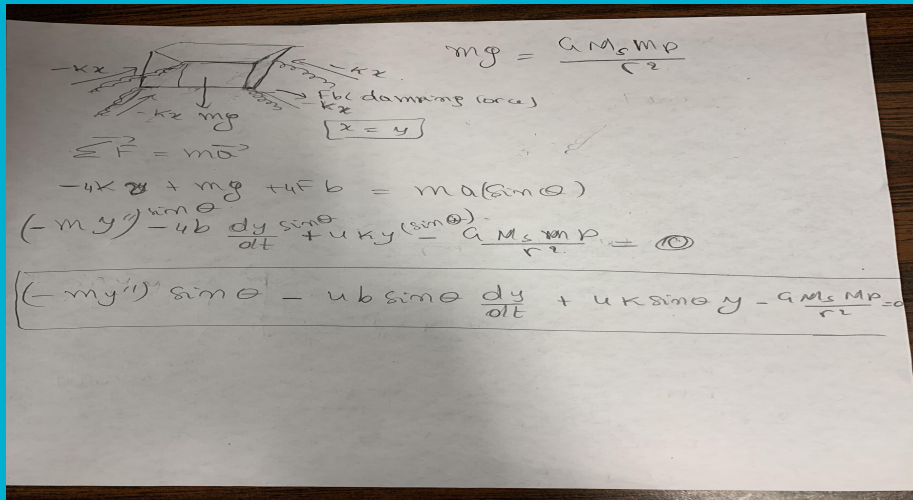 mg = G Ms Mp / r²
-Kx
-Kx
Fb (damping force)
-Kx
-Kx mg
x = y
Σ F = ma
-4K y + mg + 4Fb = ma(sin θ)
(-my'') sin θ - 4b dy/dt sin θ + 4Ky (sin θ) - G Ms Mp / r² = 0
(-my'') sin θ - 4b sin θ dy/dt + 4K sin θ y - G Ms Mp / r² = 0